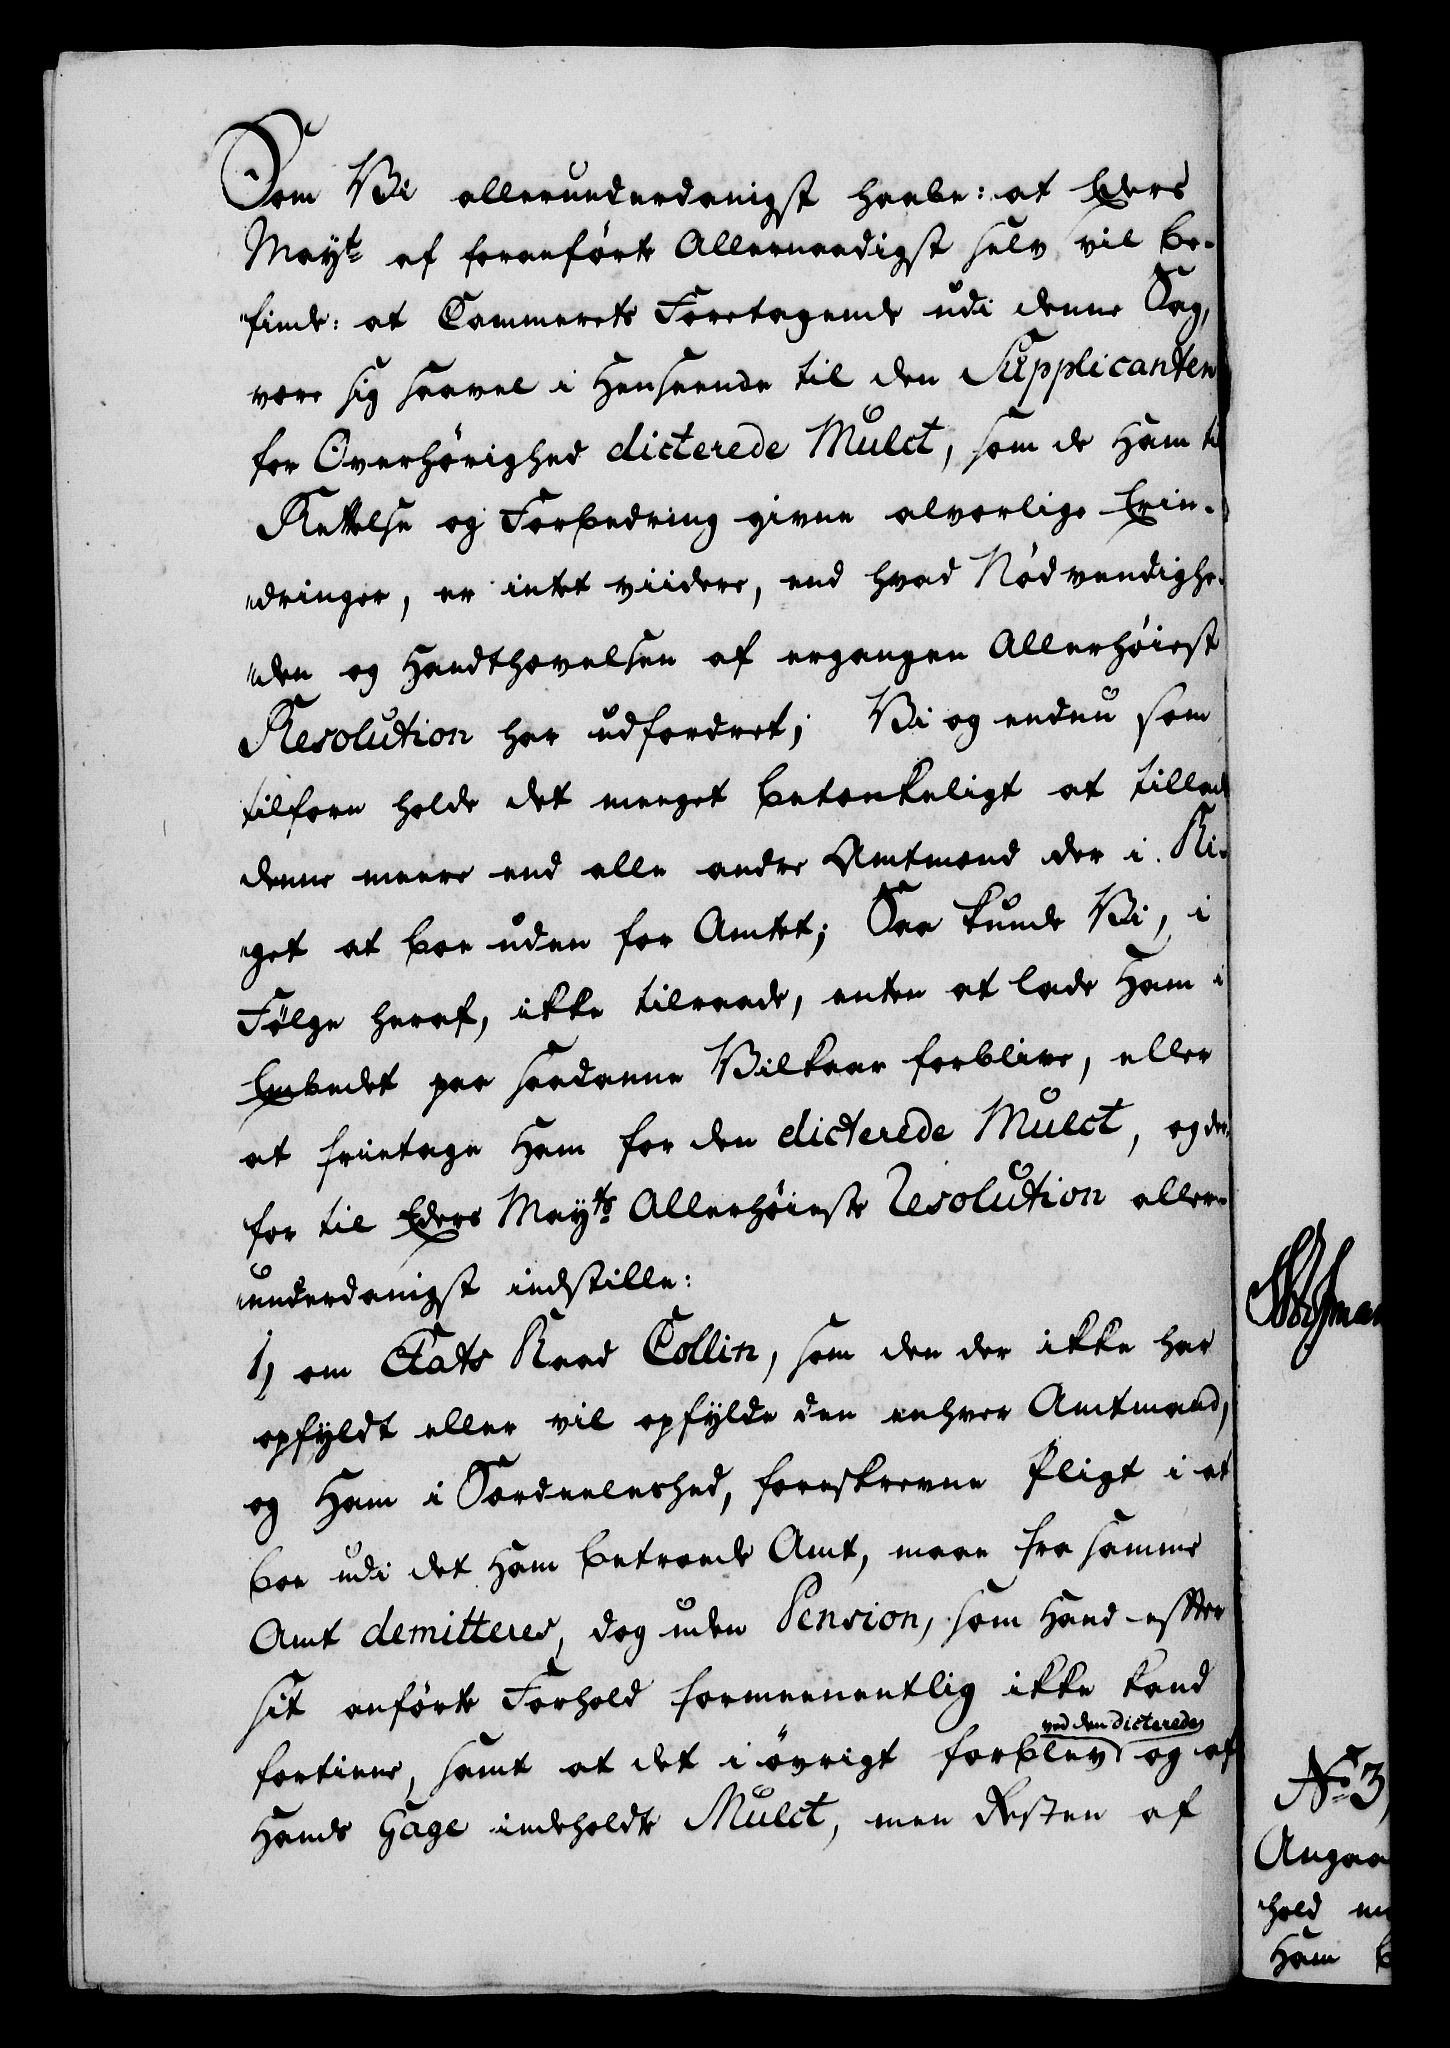 Som Vi allerunderdanigst haabe: at Eders
Mayt: af foranførte Allernaadigst selv vil be-
finde: at Cammerets Foretagende udi denne Sag,
være sig saavel i Henseende til den Supplicanten
for Overhørighed dicterede Mulct, som de Ham til
Rettelse og Forbedring givne alvorlige Erin-
dringer, er intet viidere, end hvad Nødvendighe-
den og Handthævelsen af ergangen Allerhøieste
Resolution har udfordret; Vi og endnu som
tilforn holde det meeget betænkeligt at tillade
denne meere end alle andre Amtmænd der i Ri-
get at boe uden for Amtet; Saa kunde Vi, i
Følge heraf, ikke tilraade, enten at lade Ham i
Embedet paa saadanne Vilkaar forblive, eller
at friitage Ham for den dicterede Mulct, og der-
for til Eders Mayts Allerhøieste Resolution aller-
underdanigst indstille:
1) om Etats Raad Collin, som den der ikke har
opfyldt eller vil opfylde den enhver Amtmand,
og Ham i Særdeeleshed, foreskrevne Pligt i at
boe udi det Ham betroede Amt, maae fra samme
Amt demitteres, dog uden Pension, som Hand efter
sit anførte Forhold formeenentlig ikke kand
ved den dicterede
fortiene, samt at det i øvrigt forblev og af
Hands Gage indeholdte Mulct, men Resten af
No 3,
Angaa
hold
Ham